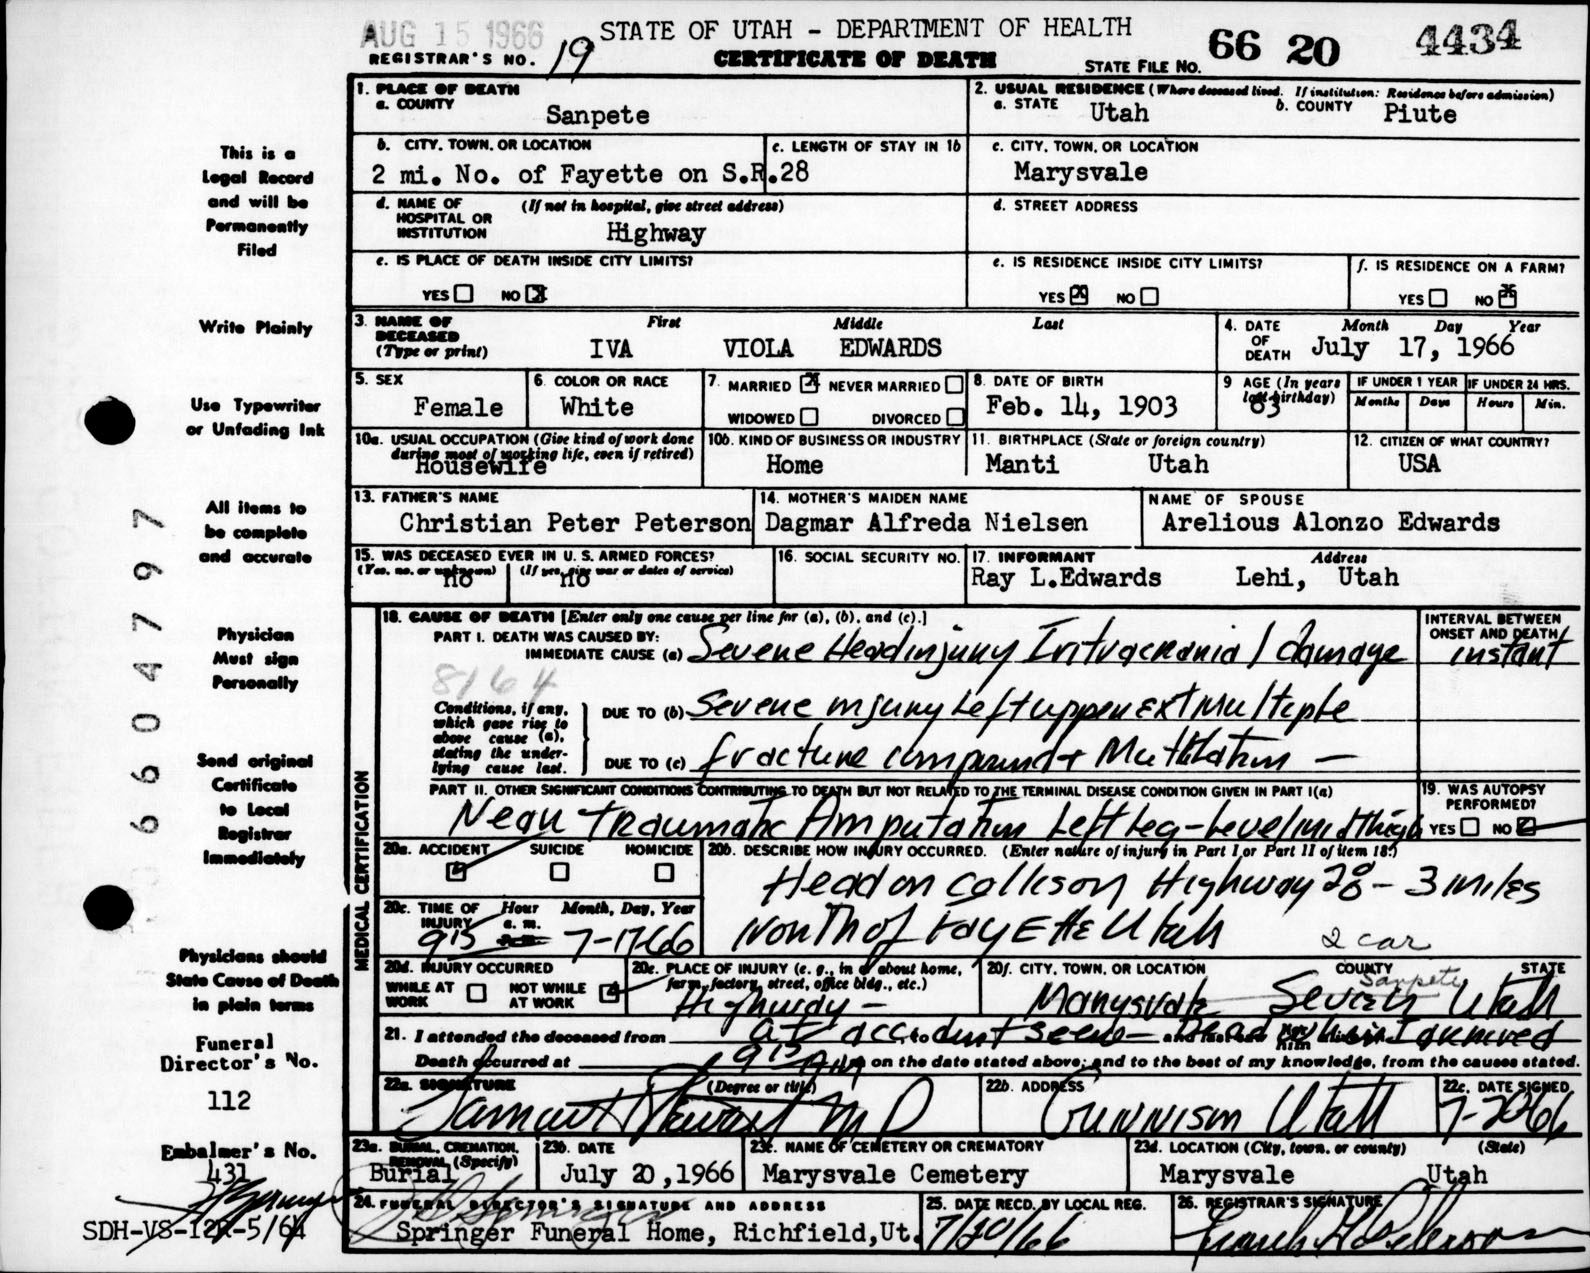 AUG 15 1966
STATE OF UTAH - DEPARTMENT OF HEALTH
REGISTRAR'S NO. 19
CERTIFICATE OF DEATH
STATE FILE NO. 66 20 4434
This is a
Legal Record
and will be
Permanently
Filed
Write Plainly
Use Typewriter
or Unfading Ink
All items to
be complete
and accurate
Physician
Must sign
Personally
Send original
Certificate
to Local
Registrar
Immediately
Physicians should
State Cause of Death
in plain terms
Funeral
Director's No.
112
Embalmer's No.
431
SDH-VS-12R-5/64
6604797
1. PLACE OF DEATH
a. COUNTY
Sanpete
2. USUAL RESIDENCE (Where deceased lived. If institution: Residence before admission)
a. STATE Utah b. COUNTY Piute
b. CITY, TOWN, OR LOCATION
2 mi. No. of Fayette on S.R.28
c. LENGTH OF STAY IN 1b
c. CITY, TOWN, OR LOCATION
Marysvale
d. NAME OF (If not in hospital, give street address)
HOSPITAL OR
INSTITUTION Highway
d. STREET ADDRESS
e. IS PLACE OF DEATH INSIDE CITY LIMITS?
YES NO X
e. IS RESIDENCE INSIDE CITY LIMITS?
YES X NO
f. IS RESIDENCE ON A FARM?
YES NO X
3. NAME OF First Middle Last
DECEASED
(Type or print) IVA VIOLA EDWARDS
4. DATE Month Day Year
OF
DEATH July 17, 1966
5. SEX
Female
6. COLOR OR RACE
White
7. MARRIED X NEVER MARRIED
WIDOWED DIVORCED
8. DATE OF BIRTH
Feb. 14, 1903
9 AGE (In years
last birthday)
63
IF UNDER 1 YEAR IF UNDER 24 HRS.
Months Days Hours Min.
10a. USUAL OCCUPATION (Give kind of work done
during most of working life, even if retired)
Housewife
10b. KIND OF BUSINESS OR INDUSTRY
Home
11. BIRTHPLACE (State or foreign country)
Manti Utah
12. CITIZEN OF WHAT COUNTRY?
USA
13. FATHER'S NAME
Christian Peter Peterson
14. MOTHER'S MAIDEN NAME
Dagmar Alfreda Nielsen
NAME OF SPOUSE
Arelious Alonzo Edwards
15. WAS DECEASED EVER IN U. S. ARMED FORCES?
(Yes, no, or unknown) (If yes, give war or dates of service)
no no
16. SOCIAL SECURITY NO.
17. INFORMANT Address
Ray L.Edwards Lehi, Utah
MEDICAL CERTIFICATION
18. CAUSE OF DEATH [Enter only one cause per line for (a), (b), and (c).]
PART I. DEATH WAS CAUSED BY:
IMMEDIATE CAUSE (a) Severe Head injury Intracranial damage
INTERVAL BETWEEN
ONSET AND DEATH
instant
8164
Conditions, if any,
which gave rise to
above cause (a),
stating the under-
lying cause last.
DUE TO (b) Severe injury Left upper Ext Multiple
DUE TO (c) fracture compound + Mutilation —
PART II. OTHER SIGNIFICANT CONDITIONS CONTRIBUTING TO DEATH BUT NOT RELATED TO THE TERMINAL DISEASE CONDITION GIVEN IN PART I(a)
Near Traumatic Amputation Left Leg - Level mid thigh
19. WAS AUTOPSY
PERFORMED?
YES NO
20a. ACCIDENT SUICIDE HOMICIDE
20b. DESCRIBE HOW INJURY OCCURRED. (Enter nature of injury in Part I or Part II of item 18.)
Head on Collison Highway 28 - 3 miles
North of Fayette Utah
2 car
20c. TIME OF Hour Month, Day, Year
INJURY a. m.
915 p. m. 7-17-66
20d. INJURY OCCURRED
WHILE AT NOT WHILE
WORK AT WORK
20e. PLACE OF INJURY (e. g., in or about home,
farm, factory, street, office bldg., etc.)
Highway -
20f. CITY, TOWN, OR LOCATION COUNTY STATE
Sanpete
Marysvale Sevier Utah
21. I attended the deceased from at accident scene - Dead when I arrived
Death occurred at 915 AM on the date stated above; and to the best of my knowledge, from the causes stated.
22a. SIGNATURE (Degree or title)
Stewart MD
22b. ADDRESS
Gunnison Utah
22c. DATE SIGNED
7-20-66
23a. BURIAL, CREMATION,
REMOVAL (Specify)
Burial
23b. DATE
July 20, 1966
23c. NAME OF CEMETERY OR CREMATORY
Marysvale Cemetery
23d. LOCATION (City, town, or county) (State)
Marysvale Utah
24. FUNERAL DIRECTOR'S SIGNATURE AND ADDRESS
Springer Funeral Home, Richfield,Ut.
25. DATE RECD. BY LOCAL REG.
7/20/66
26. REGISTRAR'S SIGNATURE